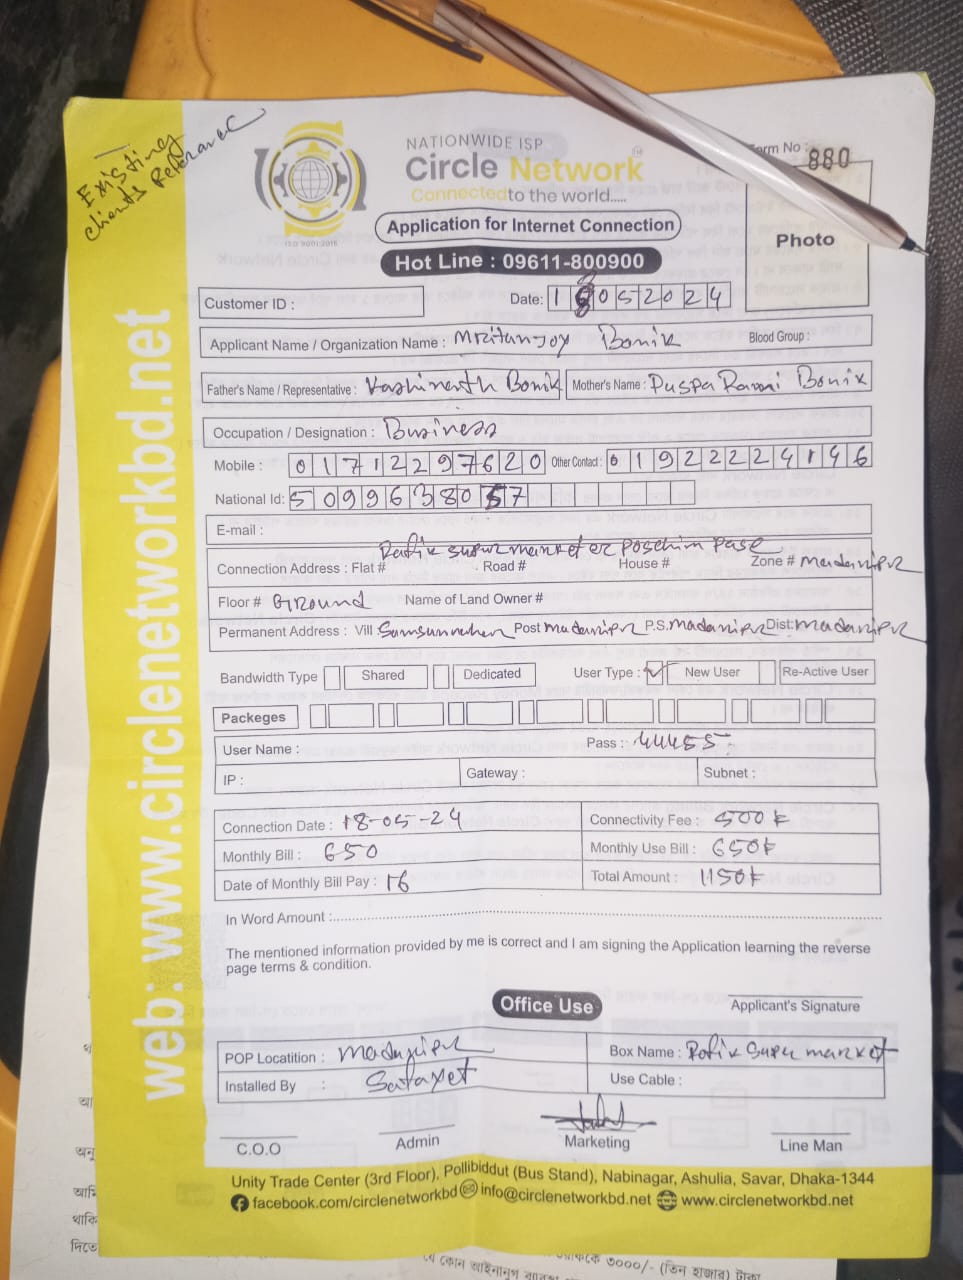 Existing
clients Referance
NATIONWIDE ISP
Circle Network
Connected to the world.....
ISO 9001:2015
Form No : 880
Application for Internet Connection
Hot Line : 09611-800900
Photo
Customer ID :
Date: 18052024
Applicant Name / Organization Name : Mritanjoy Bonik Blood Group :
Father's Name / Representative : Kashinath Bonik Mother's Name : Puspa Rani Bonik
Occupation / Designation : Business
Mobile : 01712297620 Other Contact : 01922224146
National Id: 5099638057
E-mail :
Rafik super market er Poschim Pase
Connection Address : Flat # Road # House # Zone # Madaripur
Floor # Ground Name of Land Owner #
Permanent Address : Vill Post Madaripur P.S. Madaripur Dist: Madaripur
Bandwidth Type Shared Dedicated User Type : New User Re-Active User
Packeges
User Name : Pass : 44455
IP : Gateway : Subnet :
Connection Date : 18-05-24 Connectivity Fee : 500
Monthly Bill : 650 Monthly Use Bill : 650
Date of Monthly Bill Pay : 16 Total Amount : 1150
In Word Amount :
The mentioned information provided by me is correct and I am signing the Application learning the reverse
page terms & condition.
Office Use
Applicant's Signature
POP Locatition : Madaripur Box Name : Rofik Super market
Installed By : Use Cable :
C.O.O Admin Marketing Line Man
Unity Trade Center (3rd Floor), Pollibiddut (Bus Stand), Nabinagar, Ashulia, Savar, Dhaka-1344
facebook.com/circlenetworkbd info@circlenetworkbd.net www.circlenetworkbd.net
web: www.circlenetworkbd.net
৩০০০/- (তিন হাজার) টাকা